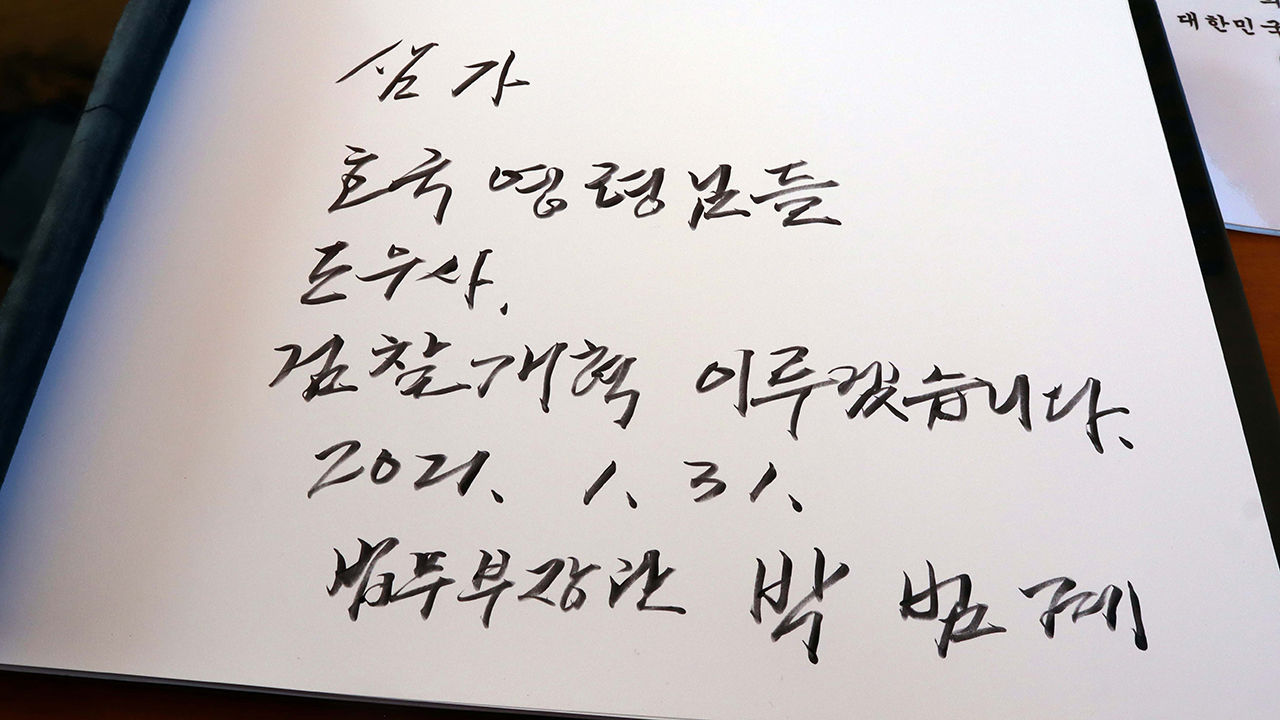 삼가
호국영령님들
도우사,
검찰개혁 이루겠습니다.
2021. 1. 31.
법무부장관 박 범 계
대한민국